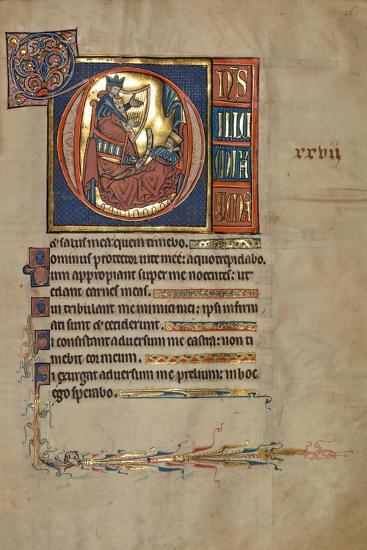 DNS
xxvii
& salus mea: quem timebo.
Dominus protector uite mee: a quo trepidabo.
Dum appropiant super me nocentes: ut
edant carnes meas.
Qui tribulant me inimici mei: ipsi infirm
ati sunt & ceciderunt.
Si consistant aduersum me castra: non ti
mebit cor meum.
Si exurgat aduersum me prelium: in hoc
ego sperabo.